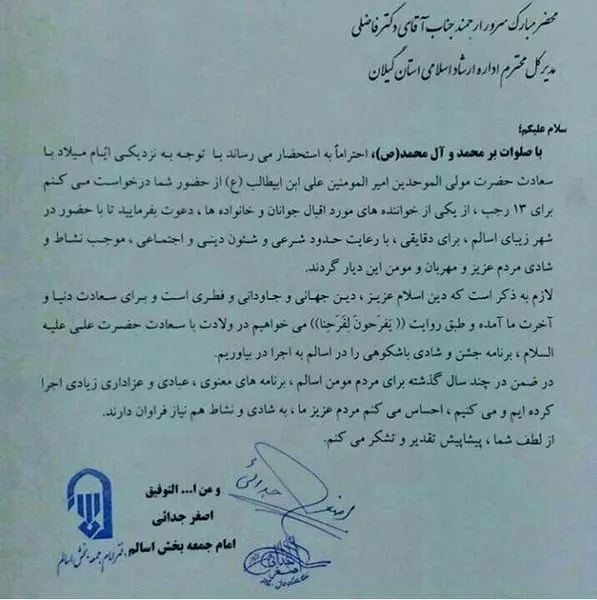 محضر مبارک سرور ارجمند جناب آقای دکتر فاضلی
مدیرکل محترم اداره ارشاد اسلامی استان گیلان
سلام علیکم؛
با صلوات بر محمد و آل محمد(ص)، احتراماً به استحضار می رساند با توجه به نزدیکی ایّام میلاد با
سعادت حضرت مولی الموحدین امیر المومنین علی ابن ابیطالب (ع) از حضور شما درخواست می کنم
برای ۱۳ رجب ، از یکی از خواننده های مورد اقبال جوانان و خانواده ها ، دعوت بفرمایید تا با حضور در
شهر زیبای اسالم ، برای دقایقی ، با رعایت حدود شرعی و شئون دینی و اجتماعی ، موجب نشاط و
شادی مردم عزیز و مهربان و مومن این دیار گردند.
لازم به ذکر است که دین اسلام عزیز ، دین جهانی و جاودانی و فطری است و برای سعادت دنیا و
آخرت ما آمده و طبق روایت (( یَفرَحونَ لِفَرَحِنا)) می خواهیم در ولادت با سعادت حضرت علی علیه
السلام ، برنامه جشن و شادی باشکوهی را در اسالم به اجرا در بیاوریم.
در ضمن در چند سال گذشته برای مردم مومن اسالم ، برنامه های معنوی ، عبادی و عزاداری زیادی اجرا
کرده ایم و می کنیم ، احساس می کنم مردم عزیز ما ، به شادی و نشاط هم نیاز فراوان دارند.
از لطف شما ، پیشاپیش تقدیر و تشکر می کنم.
و من ا... التوفیق
اصغر جدائی
امام جمعه بخش اسالم
اصغر جدائی
دفتر امام جمعه بخش اسالم